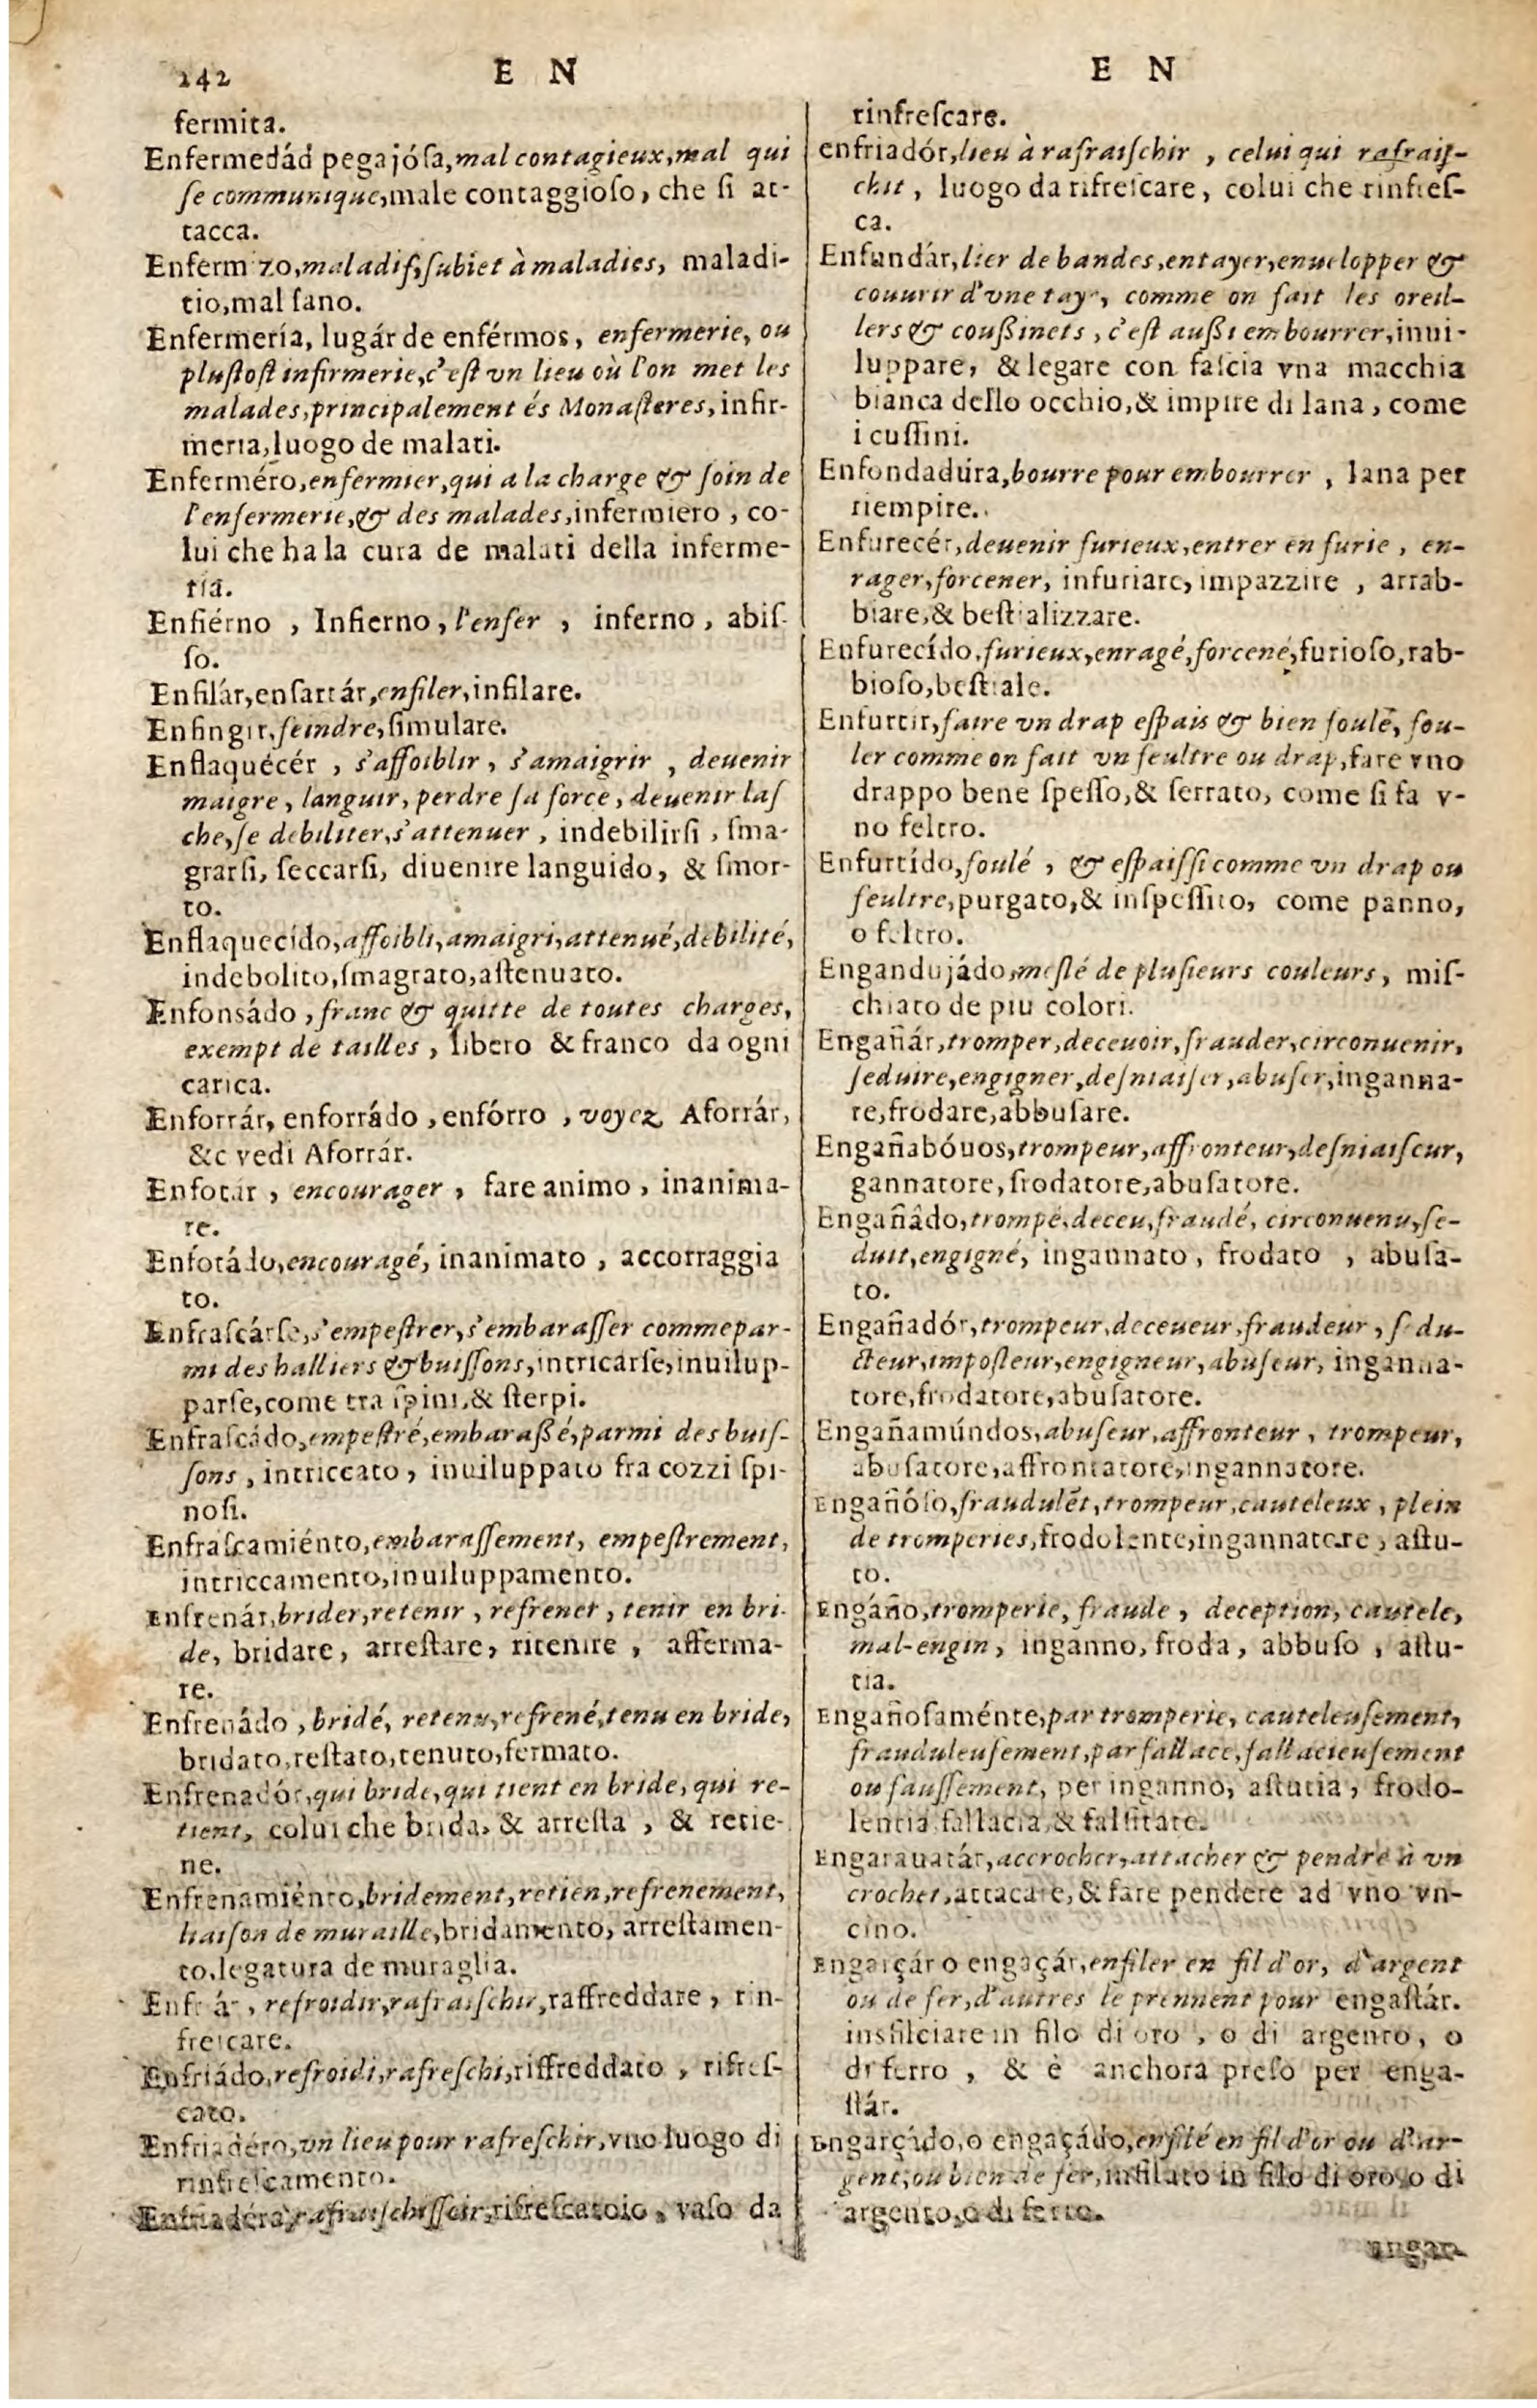 242 E N
fermita.
Enfermedád pegajósa, mal contagieux, mal qui
se communique, male contaggioso, che si at-
tacca.
Enferm zo, maladif, subiet à maladies, maladi-
tio, mal sano.
Enfermería, lugár de enférmos, enfermerie, ou
plustost infirmerie, c'est vn lieu où l'on met les
malades, principalement és Monasteres, infir-
meria, luogo de malati.
Enferméro, enfermier, qui a la charge & soin de
l'enfermerie, & des malades, infermiero, co-
lui che ha la cura de malati della inferme-
ria.
Enfiérno, Infierno, l'enfer, inferno, abis-
so.
Enfilár, ensartár, enfiler, infilare.
Enfingir, feindre, simulare.
Enflaquécér, s'affoiblir, s'amaigrir, deuenir
maigre, languir, perdre sa force, deuenir las
che, se debiliter, s'attenuer, indebilirsi, sma-
grarsi, seccarsi, diuenire languido, & smor-
to.
Enflaquecído, affoibli, amaigri, attenué, debilité,
indebolito, smagrato, astenuato.
Enfonsádo, franc & quitte de toutes charges,
exempt de tailles, libero & franco da ogni
carica.
Enforrár, enforrádo, enfórro, voyez Aforrár,
&c vedi Aforrár.
Enfotár, encourager, fare animo, inanima-
re.
Enfotádo, encouragé, inanimato, accorraggia
to.
Enfrascárse, s'empestrer, s'embarasser comme par-
mi des halliers & buissons, intricarse, inuilup-
parse, come tra spini, & sterpi.
Enfrascádo, empestré, embarassé, parmi des buis-
sons, intriccato, inuiluppato fra cozzi spi-
nosi.
Enfrascamiénto, embarassement, empestrement,
intriccamento, inuiluppamento.
Enfrenár, brider, retenir, refrener, tenir en bri-
de, bridare, arrestare, ritenire, afferma-
re.
Enfrenádo, bridé, retenu, refrené, tenu en bride,
bridato, restato, tenuto, fermato.
Enfrenadór, qui bride, qui tient en bride, qui re-
tient, colui che brida, & arresta, & retie-
ne.
Enfrenamiénto, bridement, retien, refrenement,
liaison de muraille, bridamento, arrestamen-
to, legatura de muraglia.
Enfr ár, refroidir, rafraischir, raffreddare, rin-
frescare.
Enfriádo, refroidi, rafreschi, riffreddato, rifres-
cato.
Enfriadéro, vn lieu pour rafreschir, vno luogo di
rinfrescamento.
Enfriadéra, rafraischissoir, rifrescatoio, vaso da
E N
rinfrescare.
enfriadór, lieu à rafraischir, celui qui rafrais-
chit, luogo da rifrescare, colui che rinfres-
ca.
Enfundár, lier de bandes, entayer, enuelopper &
couurir d'vne taye, comme on fait les oreil-
lers & coußinets, c'est außi embourrer, inui-
luppare, & legare con fascia vna macchia
bianca dello occhio, & impire di lana, come
i cussini.
Enfondadúra, bourre pour embourrer, lana per
riempire.
Enfurecér, deuenir furieux, entrer en furie, en-
rager, forcener, infuriare, impazzire, arrab-
biare, & bestializzare.
Enfurecído, furieux, enragé, forcené, furioso, rab-
bioso, bestiale.
Enfurtir, faire vn drap espais & bien foulé, fou-
ler comme on fait vn feultre ou drap, fare vno
drappo bene spesso, & serrato, come si fa v-
no feltro.
Enfurtído, foulé, & espaissi comme vn drap ou
feultre, purgato, & inspessito, come panno,
o feltro.
Engandujádo, meslé de plusieurs couleurs, mis-
chiato de piu colori.
Engañár, tromper, deceuoir, frauder, circonuenir,
seduire, engigner, desniaiser, abuser, inganna-
re, frodare, abbusare.
Engañabóuos, trompeur, affronteur, desniaiseur,
gannatore, frodatore, abusatore.
Engañádo, trompé, deceu, fraudé, circonuenu, se-
duit, engigné, ingannato, frodato, abusa-
to.
Engañadór, trompeur, deceueur, fraudeur, sedu-
cteur, imposteur, engigneur, abuseur, inganna-
tore, frodatore, abusatore.
Engañamúndos, abuseur, affronteur, trompeur,
abusatore, affrontatore, ingannatore.
Engañóso, fraudulẽt, trompeur, cauteleux, plein
de tromperies, frodolente, ingannatore, astu-
to.
Engáño, tromperie, fraude, deception, cautele,
mal-engin, inganno, froda, abbuso, astu-
tia.
Engañosaménte, par tromperie, cauteleusement,
frauduleusement, par fallace, fallacieusement
ou faussement, per inganno, astutia, frodo-
lentia fallacia, & falsitate.
Engarauatár, accrocher, attacher & pendre à vn
crochet, attacare, & fare pendere ad vno vn-
cino.
Engarçár o engaçár, enfiler en fil d'or, d'argent
ou de fer, d'autres le prennent pour engastár.
insfilciare in filo di oro, o di argento, o
di ferro, & è anchora preso per enga-
stár.
Engarçádo, o engaçádo, enfilé en fil d'or ou d'ar-
gent, ou bien de fer, infilato in filo di oro, o di
argento, o di ferro.
angar-